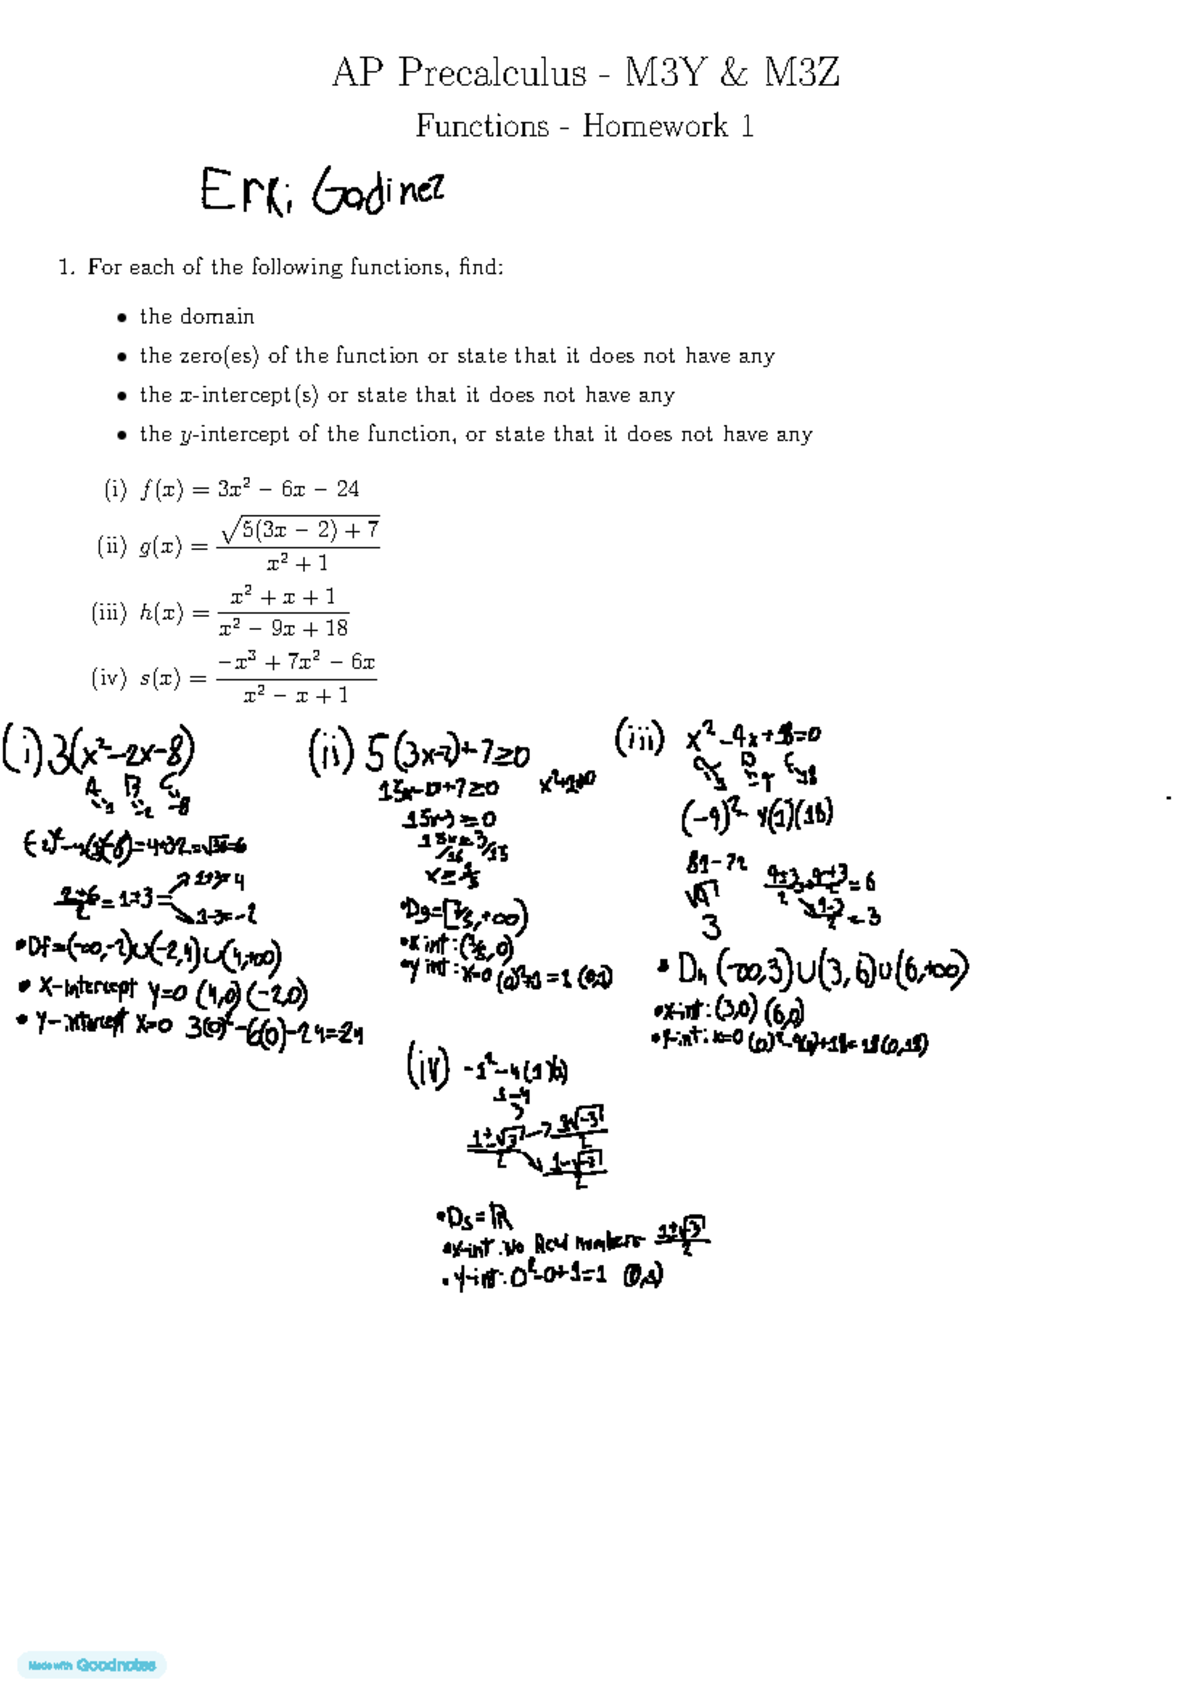 AP Precalculus - M3Y & M3Z
Functions - Homework 1
Erki Godinez
1. For each of the following functions, find:
• the domain
• the zero(es) of the function or state that it does not have any
• the x-intercept(s) or state that it does not have any
• the y-intercept of the function, or state that it does not have any
(i) f(x) = 3x² − 6x − 24
(ii) g(x) = √(5(3x − 2) + 7) / (x² + 1)
(iii) h(x) = (x² + x + 1) / (x² − 9x + 18)
(iv) s(x) = (−x³ + 7x² − 6x) / (x² − x + 1)
(i) 3(x²−2x−8)
A B C
=4+32=√36=6
=1±3= 1+3=4
1−3=−2
• Df=(−∞,−2)∪(−2,4)∪(4,+∞)
• X-Intercept y=0 (4,0) (−2,0)
• Y-intercept X=0 3(0)²−6(0)−24=−24
(ii) 5(3x−2)+7≥0
15x−10+7≥0
15x−3≥0
• Dg=[⅕,+∞)
• x int: (⅕,0)
• y int: x=0 (0)²+1=1 (0,1)
(iii) x²−9x+18=0
(−9)²−4(1)(18)
81−72
√9
3
=6
=3
• Dh (−∞,3)∪(3,6)∪(6,+∞)
• x-int: (3,0) (6,0)
• y-int: x=0 (0)²−9(0)+18=18 (0,18)
(iv) −1²−4(1)(1)
1−4
• Ds=ℝ
• x-int: No Real numbers
• y-int: 0²−0+1=1 (0,1)
Made with Goodnotes